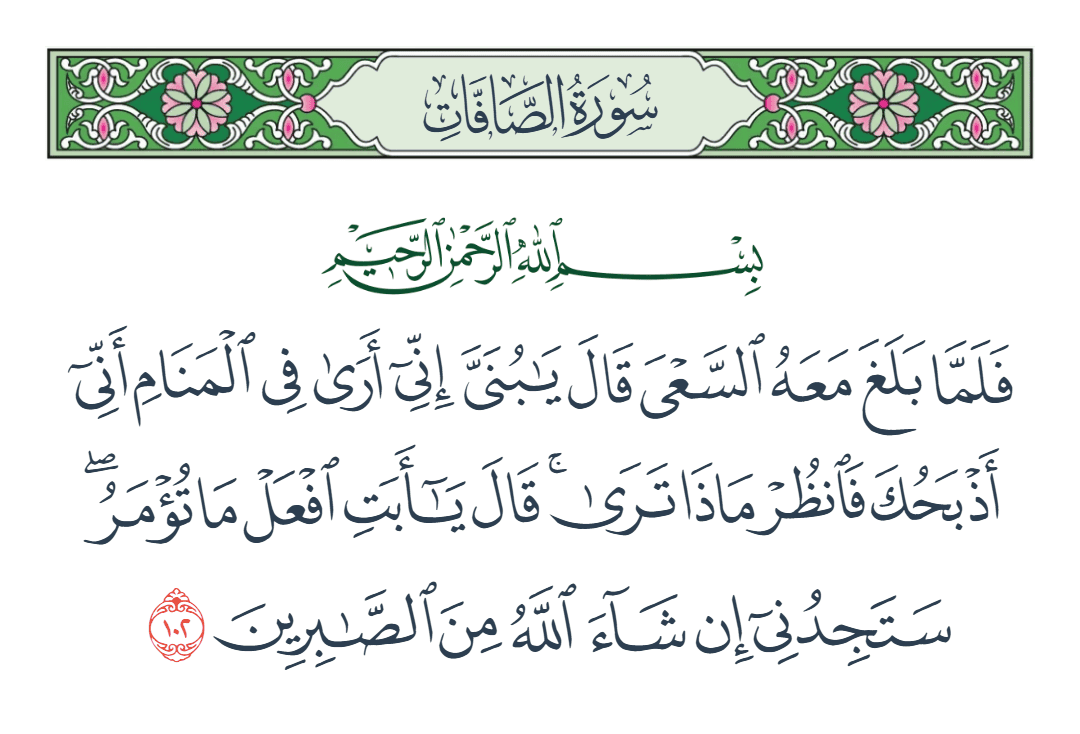 سُورَةُ الصَّافَّاتِ
بِسْمِ ٱللَّهِ ٱلرَّحْمَٰنِ ٱلرَّحِيمِ
فَلَمَّا بَلَغَ مَعَهُ ٱلسَّعْىَ قَالَ يَـٰبُنَىَّ إِنِّىٓ أَرَىٰ فِى ٱلْمَنَامِ أَنِّىٓ
أَذْبَحُكَ فَٱنظُرْ مَاذَا تَرَىٰ ۚ قَالَ يَـٰٓأَبَتِ ٱفْعَلْ مَا تُؤْمَرُ ۖ
سَتَجِدُنِىٓ إِن شَآءَ ٱللَّهُ مِنَ ٱلصَّـٰبِرِينَ ١٠٢